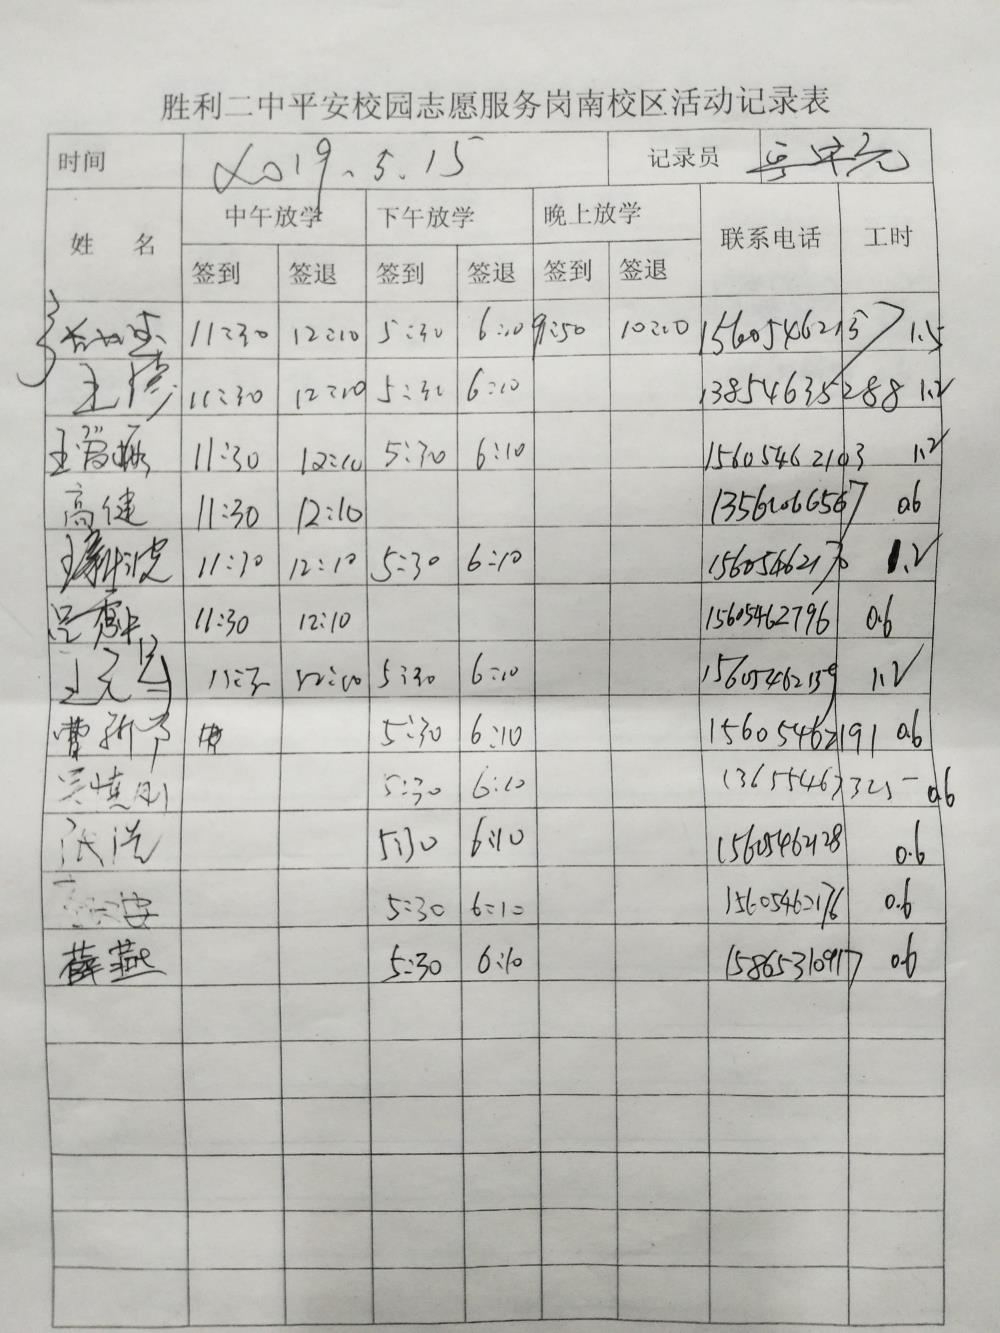 胜利二中平安校园志愿服务岗南校区活动记录表
时间 2019.5.15 记录员
姓 名 中午放学 下午放学 晚上放学 联系电话 工时
签到 签退 签到 签退 签到 签退
11:30 12:10 5:30 6:10 9:50 10:10 15605462157 1.5
王 11:30 12:10 5:30 6:10 13854635288 1.2
王爱振 11:30 12:10 5:30 6:10 15605462103 1.2
高健 11:30 12:10 0.6
王新波 11:30 12:10 5:30 6:10 15605462170 1.2
吕 11:30 12:10 15605462796 0.6
王元 11:30 12:10 5:30 6:10 15605462159 1.2
曹新 5:30 6:10 15605462191 0.6
吴慎刚 5:30 6:10 0.6
张浩 5:30 6:10 15605462128 0.6
安 5:30 6:10 15605462176 0.6
薛燕 5:30 6:10 15865310917 0.6